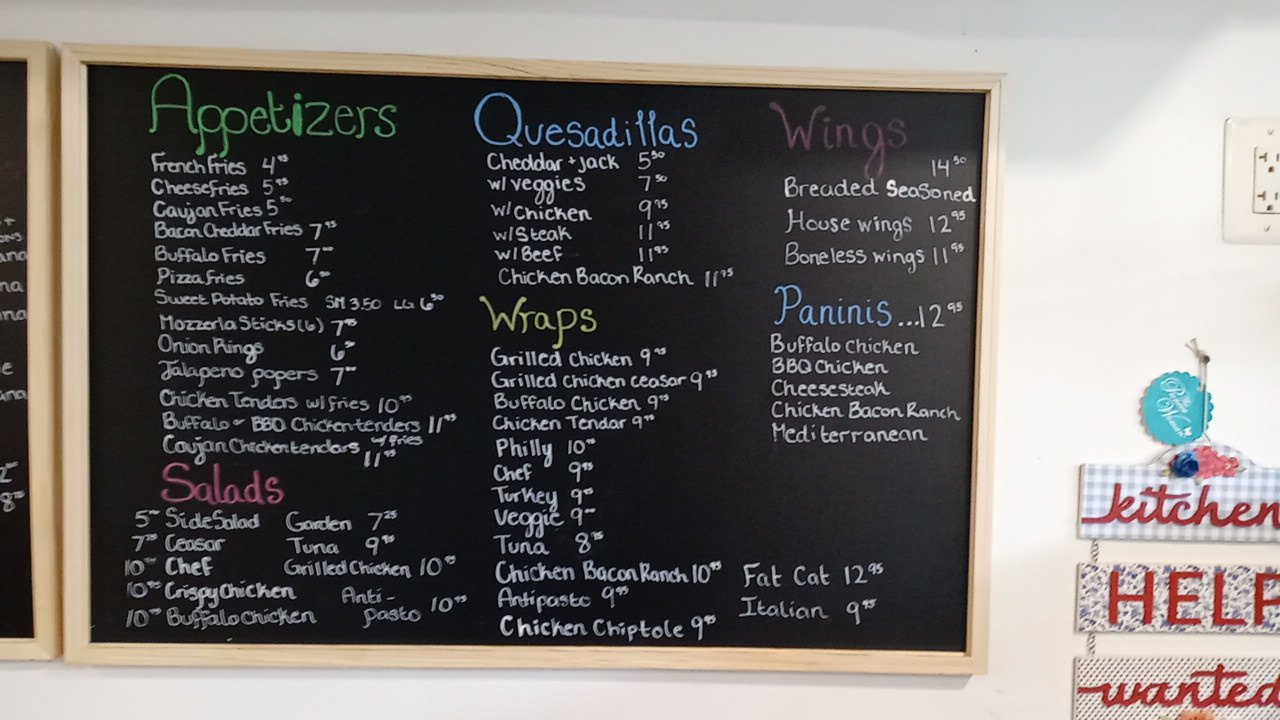 Appetizers
French Fries 4⁹⁵
Cheese Fries 5⁹⁵
Caujan Fries 5⁵⁰
Bacon Cheddar Fries 7⁹⁵
Buffalo Fries 7
Pizza Fries 6
Sweet Potato Fries SM 3.50 LG 6⁵⁰
Mozzerla Sticks (6) 7
Onion Rings 6
Jalapeno popers 7
Chicken Tenders w/fries 10
Buffalo or BBQ Chicken tenders 11⁹⁵
Caujan Chicken tenders w/fries
11⁹⁵
Salads
5 Side Salad Garden 7²⁵
7 Ceasar Tuna 9
10 Chef Grilled Chicken 10⁹⁵
10 Crispy Chicken Anti-
10 Buffalo Chicken pasto 10⁹⁵
Quesadillas
Cheddar + jack 5⁵⁰
w/veggies 7⁵⁰
w/Chicken 9⁹⁵
w/Steak 11⁹⁵
w/Beef 11⁹⁵
Chicken Bacon Ranch 11⁹⁵
Wraps
Grilled Chicken 9⁹⁵
Grilled Chicken ceasar 9⁹⁵
Buffalo Chicken 9⁹⁵
Chicken Tendar 9⁹⁵
Philly 10
Chef 9⁹⁵
Turkey 9
Veggie 9
Tuna 8
Chicken Bacon Ranch 10⁹⁵
Antipasto 9⁹⁵
Chicken Chiptole 9⁹⁵
Fat Cat 12⁹⁵
Italian 9⁹⁵
Wings
14⁵⁰
Breaded Seasoned
House wings 12⁹⁵
Boneless wings 11⁹⁵
Paninis...12⁹⁵
Buffalo Chicken
BBQ Chicken
Cheesesteak
Chicken Bacon Ranch
Mediterranean
kitchen
HELP
wanted